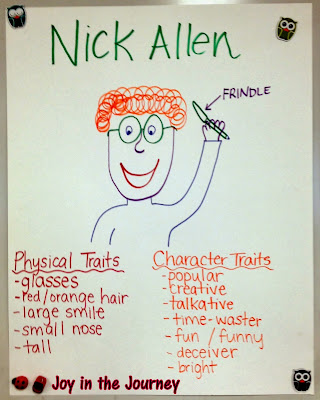 Nick Allen
FRINDLE
Physical Traits
-glasses
-red/orange hair
-large smile
-small nose
-tall
Character Traits
-popular
-creative
-talkative
-time-waster
-fun / funny
-deceiver
-bright
Joy in the Journey